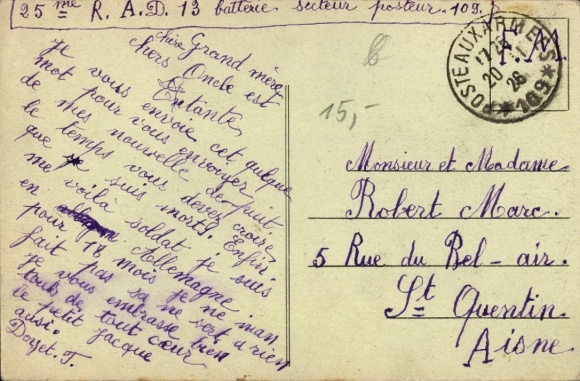 25 me R. A. D. 13 batterie secteur posteur. 109.
chère Grand mère
chers Oncle est
Tntante
je vous envoie cet quelque
mot pour vous envoyer
de mes nouvelle depuit
le temps vous devez croire
que je suis morts. Enfin
me voila soldat je suis
en Allemagne
pour 18 mois je ne man
fait pas sa ne sert a rien
je vous embrasse bien
tous de tout cœur
le petit Jacque
ausi.
Doyet. T.
15,-
F.M.
POSTE AUX ARMEES
20 -11
26
*109*
Monsieur et Madame
Robert Marc.
5 Rue du Bel-air.
St Quentin.
Aisne